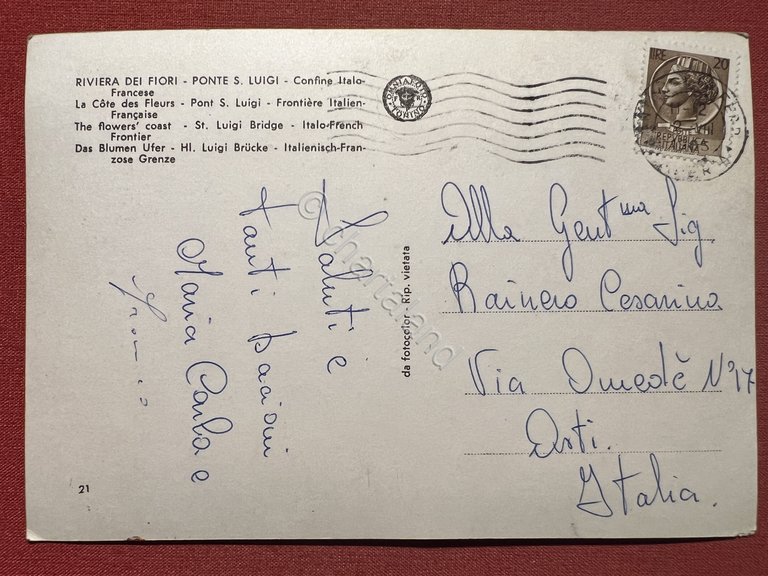 RIVIERA DEI FIORI - PONTE S. LUIGI - Confine Italo-
Francese
La Côte des Fleurs - Pont S. Luigi - Frontière Italien-
Française
The flowers' coast - St. Luigi Bridge - Italo-French
Frontier
Das Blumen Ufer - Hl. Luigi Brücke - Italienisch-Fran-
zose Grenze
TORINO
LIRE 20
REPVBBLICA
ITALIANA
Saluti e
tanti bacioni
Maria Carla e
da fotocolor - Rip. vietata
Alla Gent.ma Sig.
Rainero Cesarina
Via Omedè N° 17
Asti.
Italia.
21
© Chartaland